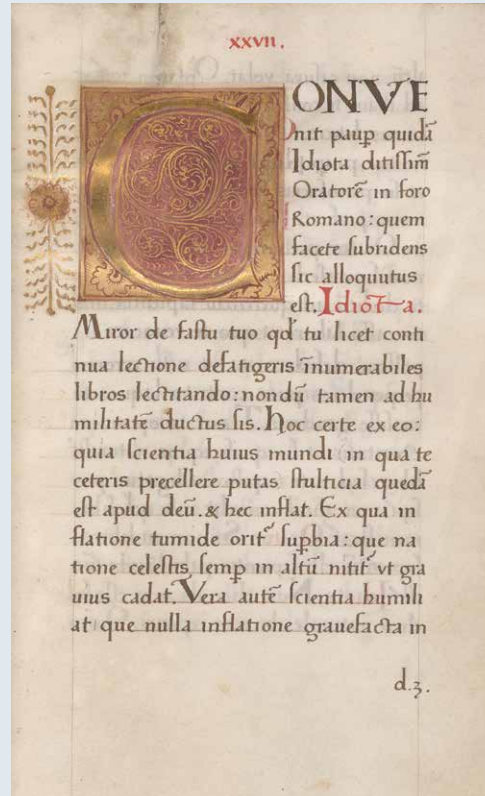 XXVII.
CONVE
nit paup̲ quidā
Idiota ditissim̄
Oratorē in foro
Romano: quem
facete subridens
sic alloquutus
est. Idiota.
Miror de fastu tuo qd̓ tu licet conti
nua lectione defatigeris īnumerabiles
libros lectitando: nondū tamen ad hu
militatē ductus sis. Hoc certe ex eo:
quia scientia huius mundi in qua te
ceteris precellere putas stulticia quedā
est apud deū. & hec inflat. Ex qua in
flatione tumide orit᷑ sup̲bia: que na
tione celestis semp̲ in altū nitit᷑ vt gra
uius cadat. Vera autē scientia humili
at que nulla inflatione grauefacta in
d.3.